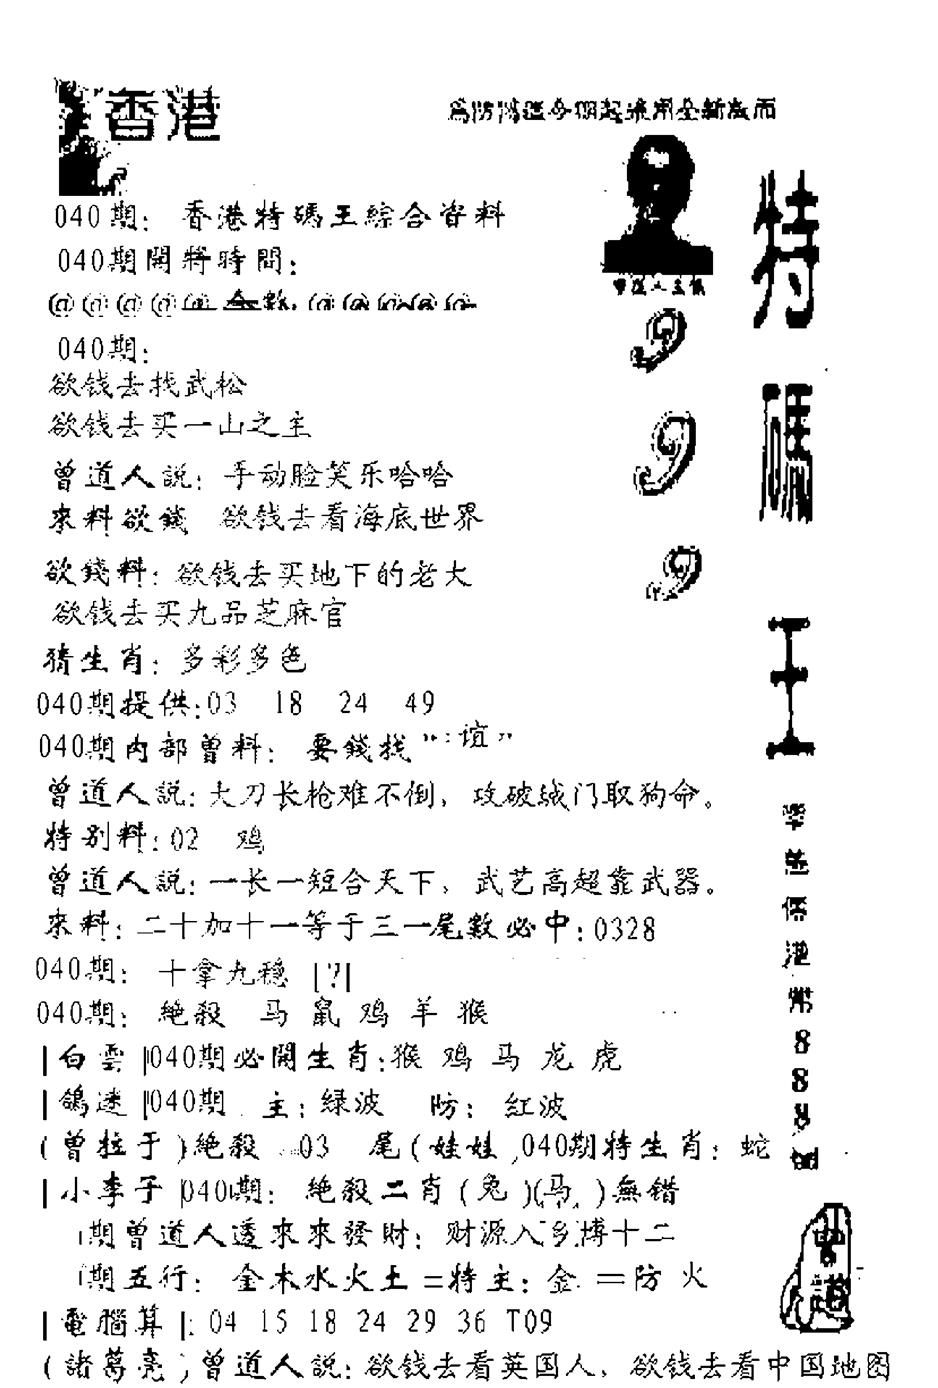 香港
為防僞造今期起采用全新版面
040期：香港特碼王綜合資料
040期開將時間：
040期：
欲钱去找武松
欲钱去买一山之主
曾道人説：手动脸笑乐哈哈
來料欲錢 欲钱去看海底世界
欲錢料：欲钱去买地下的老大
欲钱去买九品芝麻官
猜生肖：多彩多色
040期提供:03 18 24 49
040期内部曾料：要錢找“：谊”
曾道人説：大刀长枪难不倒，攻破城门取狗命。
特别料：02 鸡
曾道人説：一长一短合天下，武艺高超靠武器。
來料：二十加十一等于三一尾數必中:0328
040期：十拿九稳 |?|
040期：絶殺 马 鼠 鸡 羊 猴
|白雲|040期必開生肖:猴 鸡 马 龙 虎
|鴿迷|040期 主：绿波 防：红波
(曾拉于)絶殺 03 尾(娃娃 040期特生肖：蛇
|小李子|040期：絶殺二肖(兔)(马)無错
期曾道人透來來發財：财源入乡博十二
期五行：金木水火土=特主：金=防火
|電腦算|：04 15 18 24 29 36 T09
(諸葛亮)曾道人説：欲钱去看英国人，欲钱去看中国地图
999
特碼王
港幣888
曾道